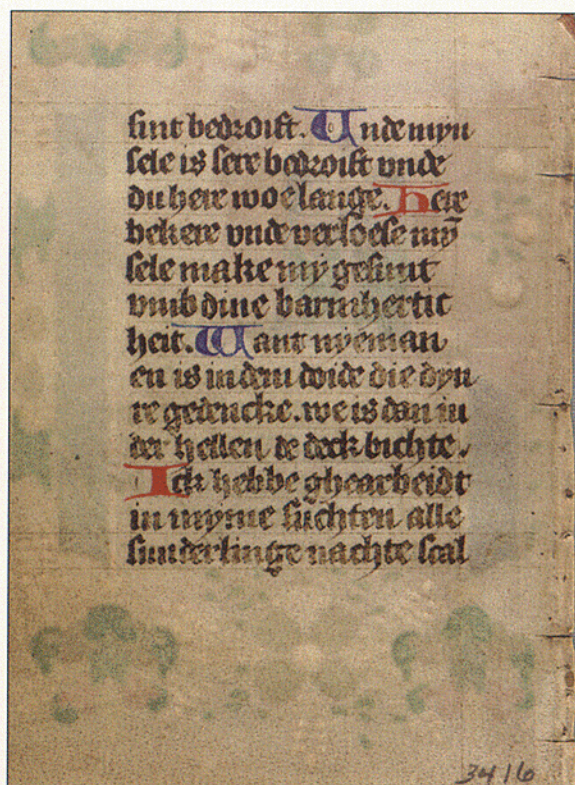 sint bedroift. Unde myn
sele is sere bedroift vnde
du here woe lange. Here
bekere vnde verloese mȳ
sele make my gesunt
vmb dine barmhertic
heit. Want nyeman
en is in dem doide die dyn
re gedencke. we is dan in
der hellen de deck bichte.
Ick hebbe ghearbeidt
in myme suchten alle
sunderlinge nachte scal
3416